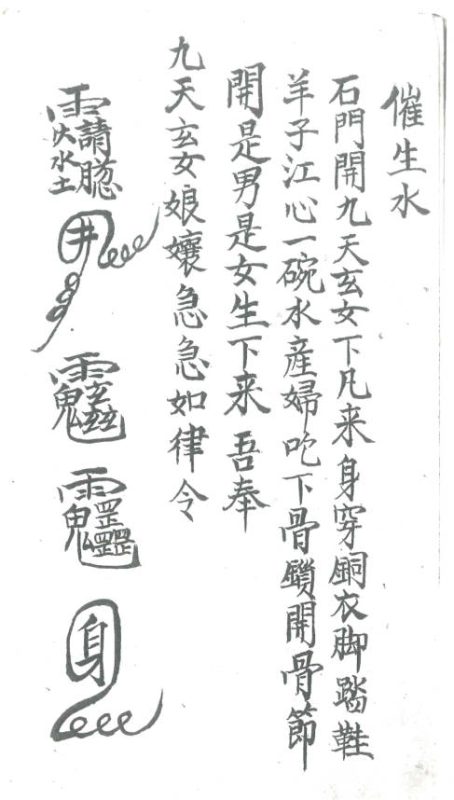 催生水
石門開九天玄女下凡来身穿銅衣脚踏鞋
羊子江心一碗水産婦吃下骨鎖開骨節
開是男是女生下来吾奉
九天玄女娘孃急急如律令
身